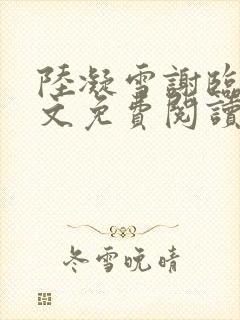 陸凝雪謝臨
文免費閱讀
冬雪晚晴